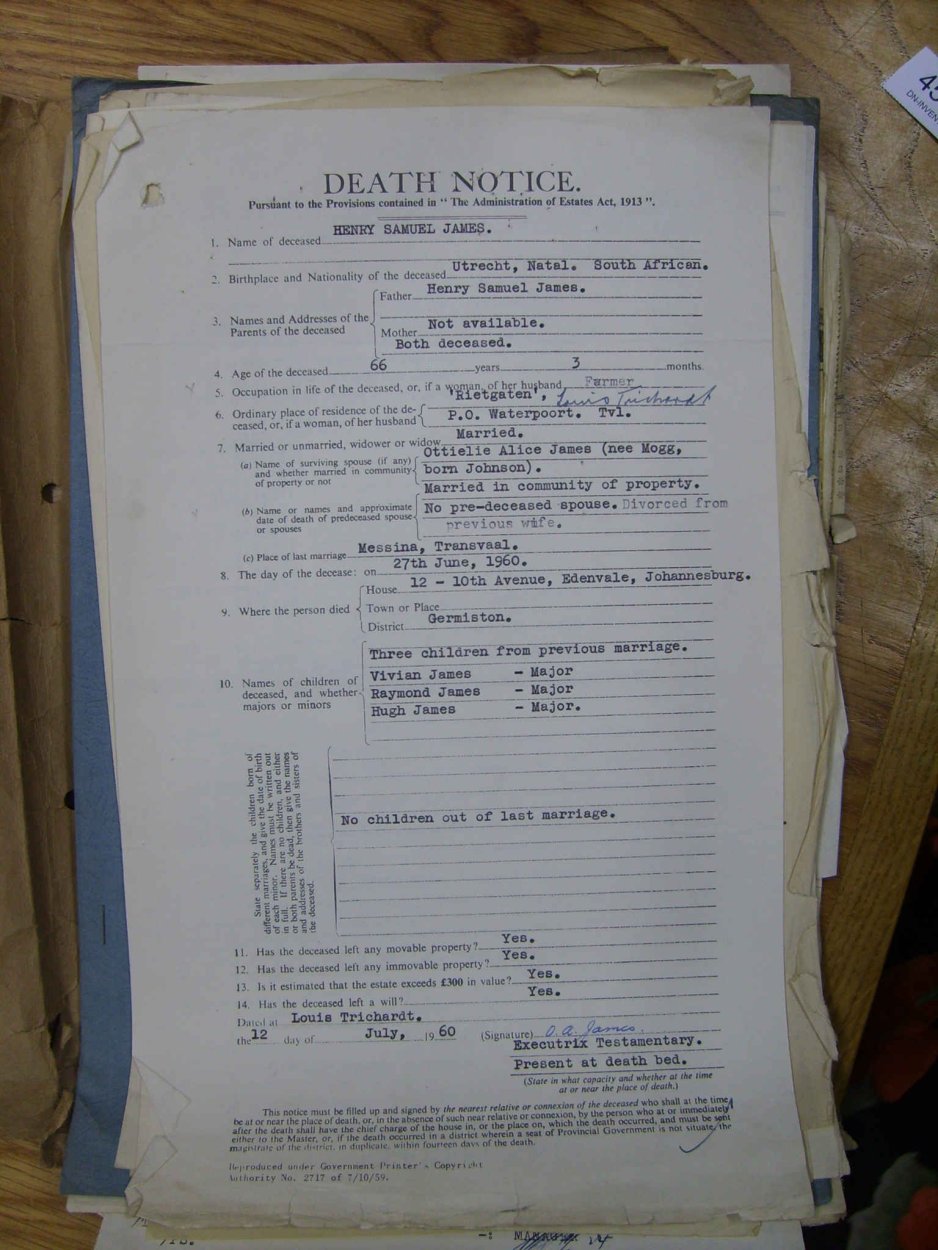 45
DN-INVEN
DEATH NOTICE.
Pursuant to the Provisions contained in “ The Administration of Estates Act, 1913 ”.
1. Name of deceased HENRY SAMUEL JAMES.
2. Birthplace and Nationality of the deceased Utrecht, Natal. South African.
3. Names and Addresses of the Parents of the deceased
Father Henry Samuel James.
Mother Not available.
Both deceased.
4. Age of the deceased 66 years 3 months.
5. Occupation in life of the deceased, or, if a woman, of her husband Farmer
6. Ordinary place of residence of the de-
ceased, or, if a woman, of her husband
'Rietgaten', Louis Trichardt
P.O. Waterpoort. Tvl.
7. Married or unmarried, widower or widow Married.
(a) Name of surviving spouse (if any)
and whether married in community
of property or not
Ottielie Alice James (nee Mogg,
born Johnson).
Married in community of property.
(b) Name or names and approximate
date of death of predeceased spouse
or spouses
No pre-deceased spouse. Divorced from
previous wife.
(c) Place of last marriage Messina, Transvaal.
8. The day of the decease: on 27th June, 1960.
9. Where the person died
House 12 - 10th Avenue, Edenvale, Johannesburg.
Town or Place
District Germiston.
10. Names of children of
deceased, and whether
majors or minors
Three children from previous marriage.
Vivian James - Major
Raymond James - Major
Hugh James - Major.
State separately the children born of
different marriages, and give the date of birth
of each minor. Names must be written out
in full. If there are no children, and either
or both parents be dead, then give the names
and addresses of the brothers and sisters of
the deceased.
No children out of last marriage.
11. Has the deceased left any movable property? Yes.
12. Has the deceased left any immovable property? Yes.
13. Is it estimated that the estate exceeds £300 in value? Yes.
14. Has the deceased left a will? Yes.
Dated at Louis Trichardt.
the 12 day of July, 1960
(Signature) O. A. James.
Executrix Testamentary.
Present at death bed.
(State in what capacity and whether at the time
at or near the place of death.)
This notice must be filled up and signed by the nearest relative or connexion of the deceased who shall at the time
be at or near the place of death, or, in the absence of such near relative or connexion, by the person who at or immediately
after the death shall have the chief charge of the house in, or the place on, which the death occurred, and must be sent
either to the Master, or, if the death occurred in a district wherein a seat of Provincial Government is not situate, the
magistrate of the district, in duplicate, within fourteen days of the death.
Reproduced under Government Printer's Copyright
Authority No. 2717 of 7/10/59.